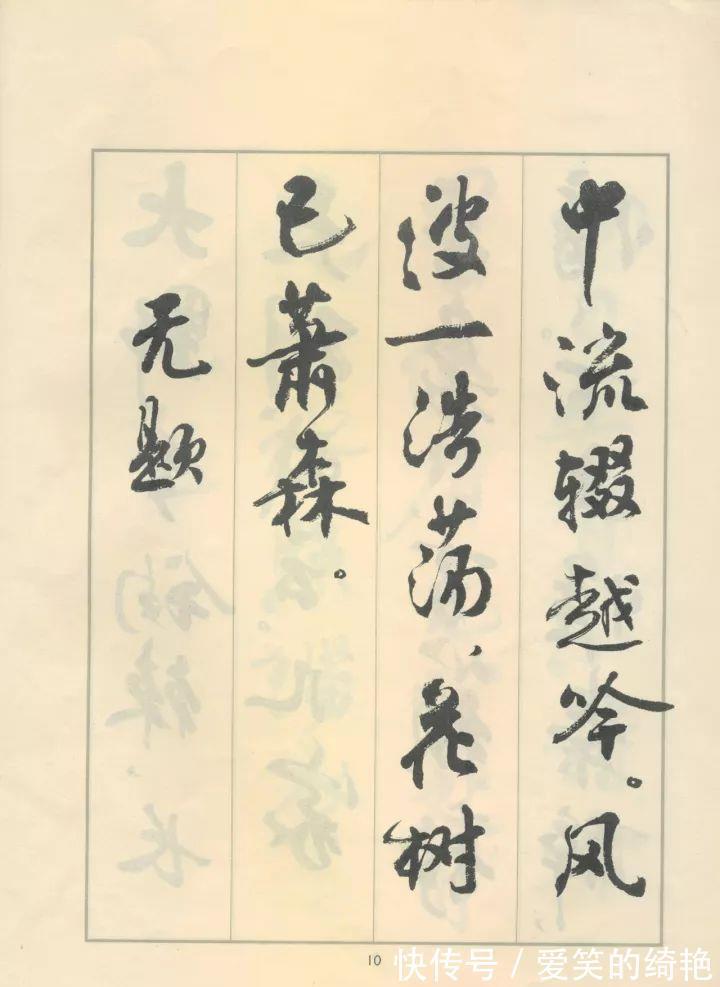 中流辍越吟。风
波一浩荡、花树
已萧森。
无题
10
快传号/爱笑的绮艳